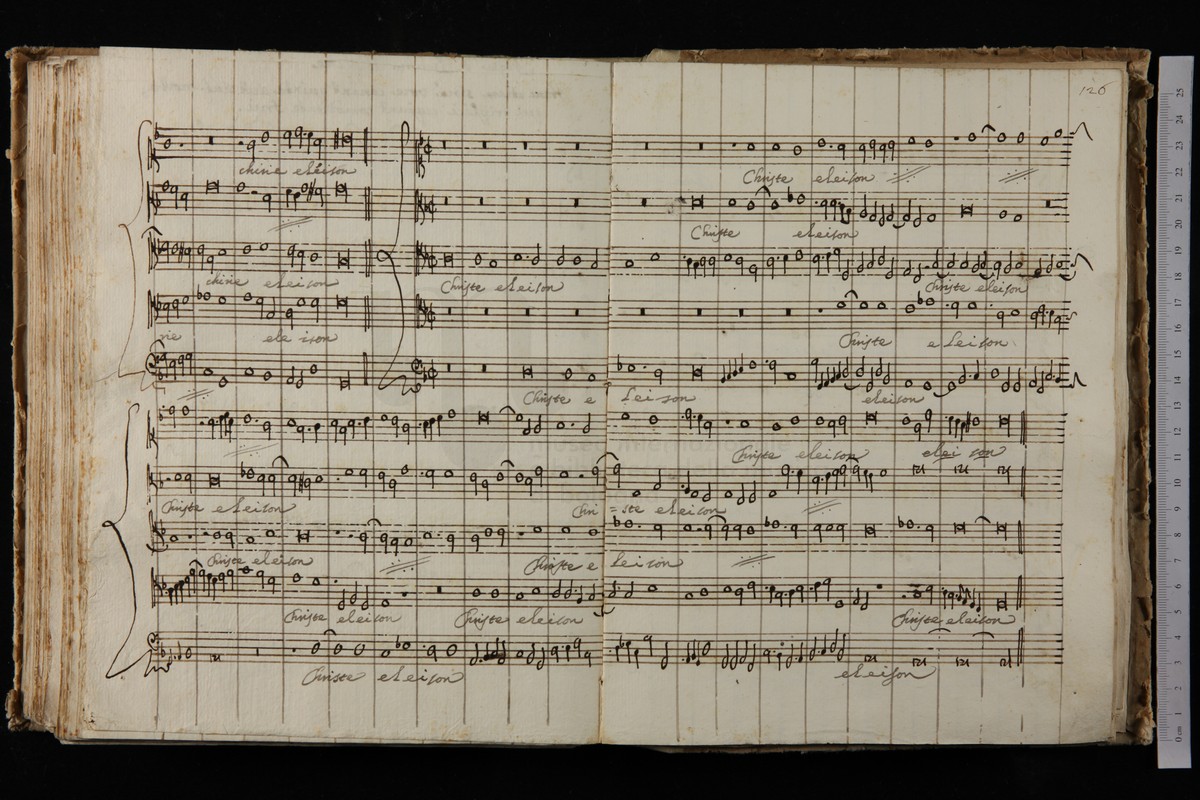 126
chirie eleison
Christe eleison
Christe eleison
chirie eleison Christe eleison Christe eleison
rie ele ison Christe eleison
Christe e leison eleison
Christe eleison elei son
Christe eleison Chri = ste eleison
Christe eleison Christe e leison
Christe eleison Christe eleison Christe eleison
Christe eleison eleison